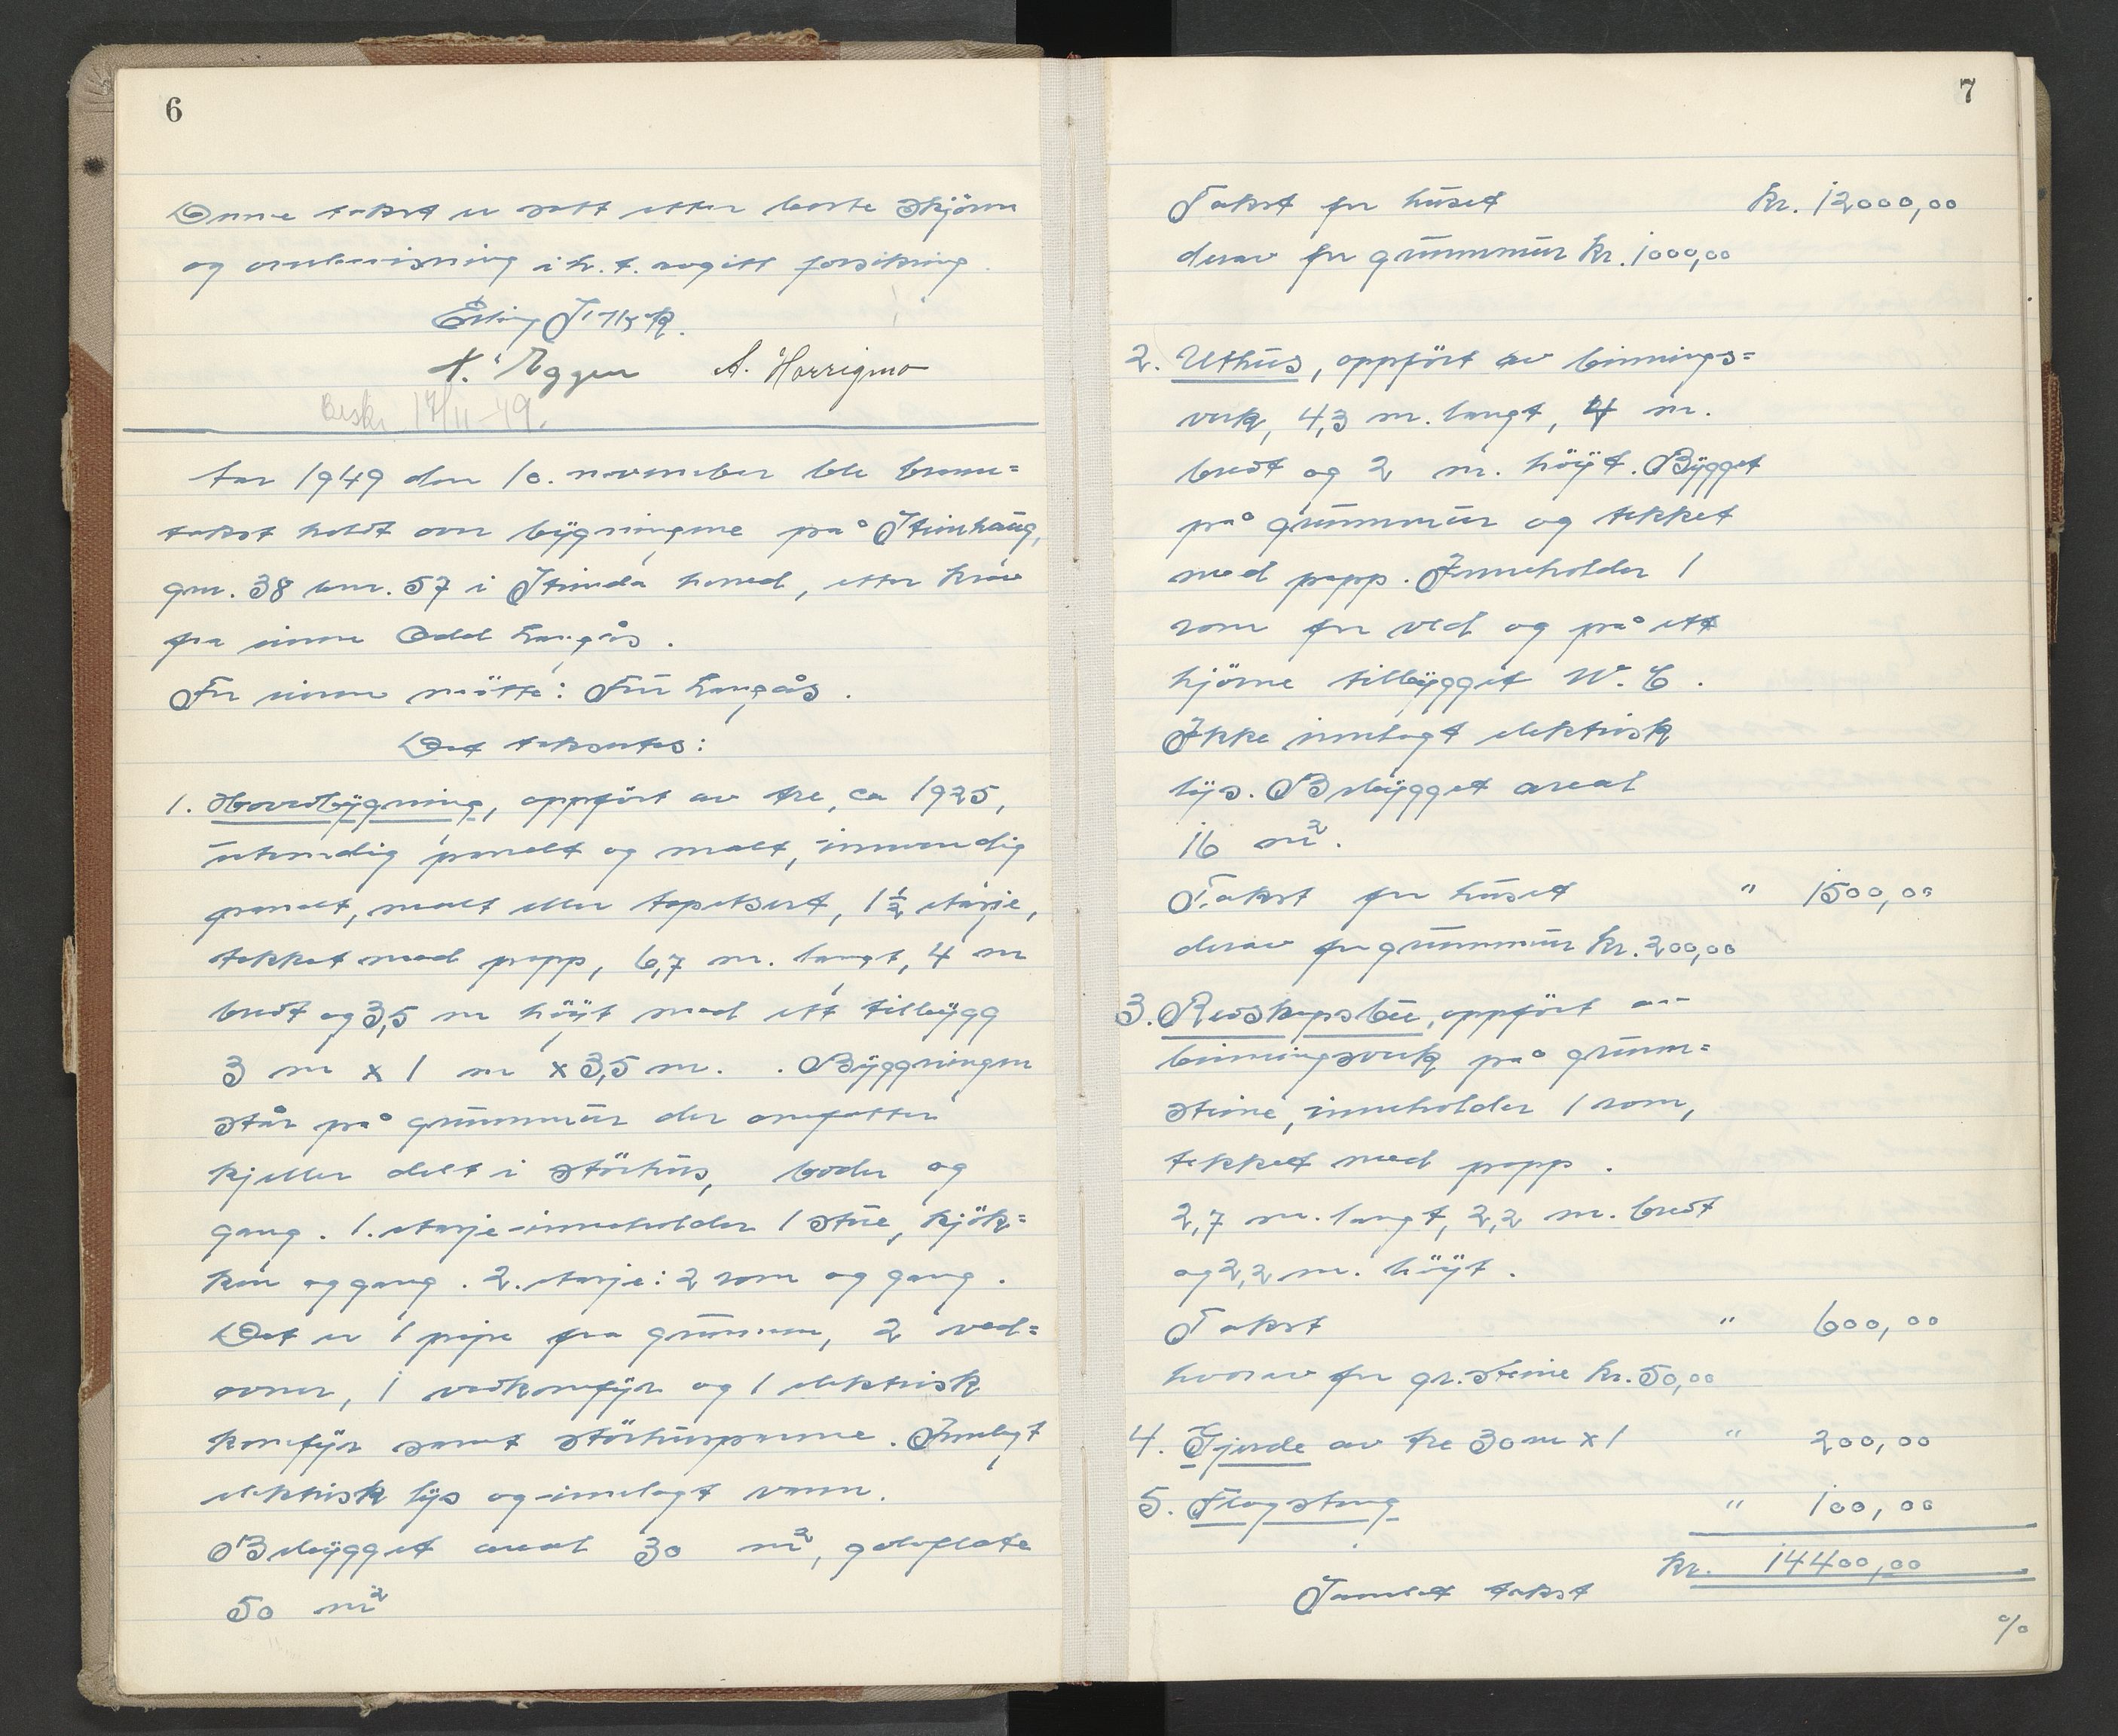 6
Denne takst er satt etter beste skjönn
og overbevisning i h. t. avgitt forsikring.
Erling
N. Eggen A. Horrigmo
Beskr. 17/11-49.
År 1949 den 10. november ble brann=
takst holdt over bygningene på Steinhaug,
gnr. 38 bnr. 57 i Strinda herred, etter krav
fra eieren Odd Langås.
For eieren mötte: Fru Langås.
Det takseres:
1. Hovedbygning, oppfört av tre, ca 1925,
utvendig panelt og malt, innvendig
panelt, malt eller tapetsert, 1½ etasje,
tekket med papp, 6,7 m. langt, 4 m
bredt og 3,5 m höyt med ett tilbygg
3 m x 1 m x 3,5 m. . Byggningen
står på grunnmur der omfatter
kjeller delt i störhus, boder og
gang. 1. etasje inneholder 1 stue, kjök=
ken og gang. 2. etasje: 2 rom og gang.
Det er 1 pipe fra grunnen, 2 ved=
ovner, 1 vedkomfyr og 1 elektrisk
komfyr samt störhuspanne. Innlagt
elektrisk lys og innlagt vann.
Bebygget areal 30 m², golvflate
50 m²
7
Takst for huset kr. 12000,00
derav for grunnmur kr. 1000,00
2. Uthus, oppfört av binnings=
verk, 4,3 m. langt, 4 m.
bredt og 2 m. höyt. Bygget
på grunnmur og tekket
med papp. Inneholder 1
rom for ved og på ett
hjörne tilbygget W. C.
Ikke innlagt elektrisk
lys. Bebygget areal
16 m².
Takst for huset " 1500,00
derav for grunnmur kr. 200,00
3. Redskapsbu, oppfört av
binningsverk på grunn=
steine, inneholder 1 rom,
tekket med papp.
2,7 m. langt, 2,2 m. bredt
og 2,2 m. höyt.
Takst " 600,00
hvorav for gr.steine kr. 50,00
4. Gjerde av tre 30 m x 1 " 200,00
5. Flagstang " 100,00
Samlet takst kr. 14400,00
%